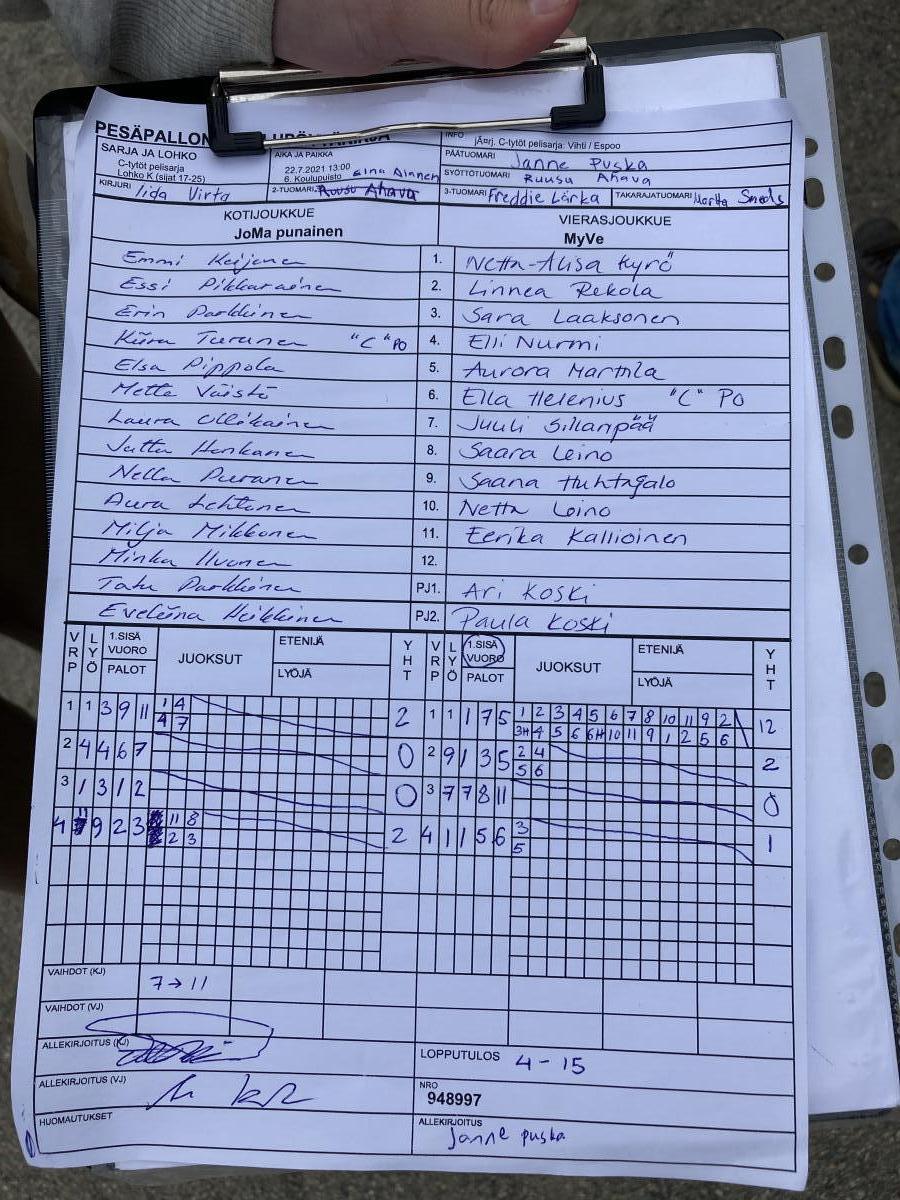 PESÄPALLON
SARJA JA LOHKO
C-tytöt pelisarja
Lohko K (sijat 17-25)
AIKA JA PAIKKA
22.7.2021 13:00
6. Koulupuisto
INFO
jÃ¤rj. C-tytöt pelisarja: Vihti / Espoo
PÄÄTUOMARI Janne Puska
SYÖTTÖTUOMARI Ruusu Ahava
KIRJURI Iida Virta
2-TUOMARI
3-TUOMARI Freddie Lärka
TAKARAJATUOMARI Martta Smeds
KOTIJOUKKUE
JoMa punainen
VIERASJOUKKUE
MyVe
Emmi Keijonen 1. Netta-Alisa Kyrö
Essi Pikkarainen 2. Linnea Rekola
Erin Parkkinen 3. Sara Laaksonen
Kiira Turunen "C" PO 4. Elli Nurmi
Elsa Pippola 5. Aurora Marttila
Mette Väistö 6. Ella Helenius "C" PO
Laura Ollikainen 7. Juuli Sillanpää
Jutta Honkanen 8. Saara Leino
Nella Puranen 9. Saana Huhtajalo
Aura Lehtonen 10. Netta Loino
Milja Mikkonen 11. Eerika Kallioinen
Minka Ilvonen 12.
Tatu Parkkinen PJ1. Ari Koski
Eveliina Heikkinen PJ2. Paula Koski
VRP LYÖ 1.SISÄ VUORO PALOT JUOKSUT ETENIJÄ LYÖJÄ YHT VRP LYÖ 1.SISÄ VUORO PALOT JUOKSUT ETENIJÄ LYÖJÄ YHT
1 1 3 9 11 1 4 2 1 1 1 7 5 1 2 3 4 5 6 7 8 10 11 9 2 12
4 7 3H 4 5 6 6H 10 11 9 1 2 5 6
2 4 4 6 7 0 2 9 1 3 5 2 4 2
5 6
3 1 3 1 2 0 3 7 7 8 11 0
4 9 2 3 11 8 2 4 1 1 5 6 3 1
2 3 5
VAIHDOT (KJ) 7 → 11
VAIHDOT (VJ)
ALLEKIRJOITUS (KJ)
LOPPUTULOS 4 - 15
ALLEKIRJOITUS (VJ)
NRO
948997
HUOMAUTUKSET
ALLEKIRJOITUS
Janne puska